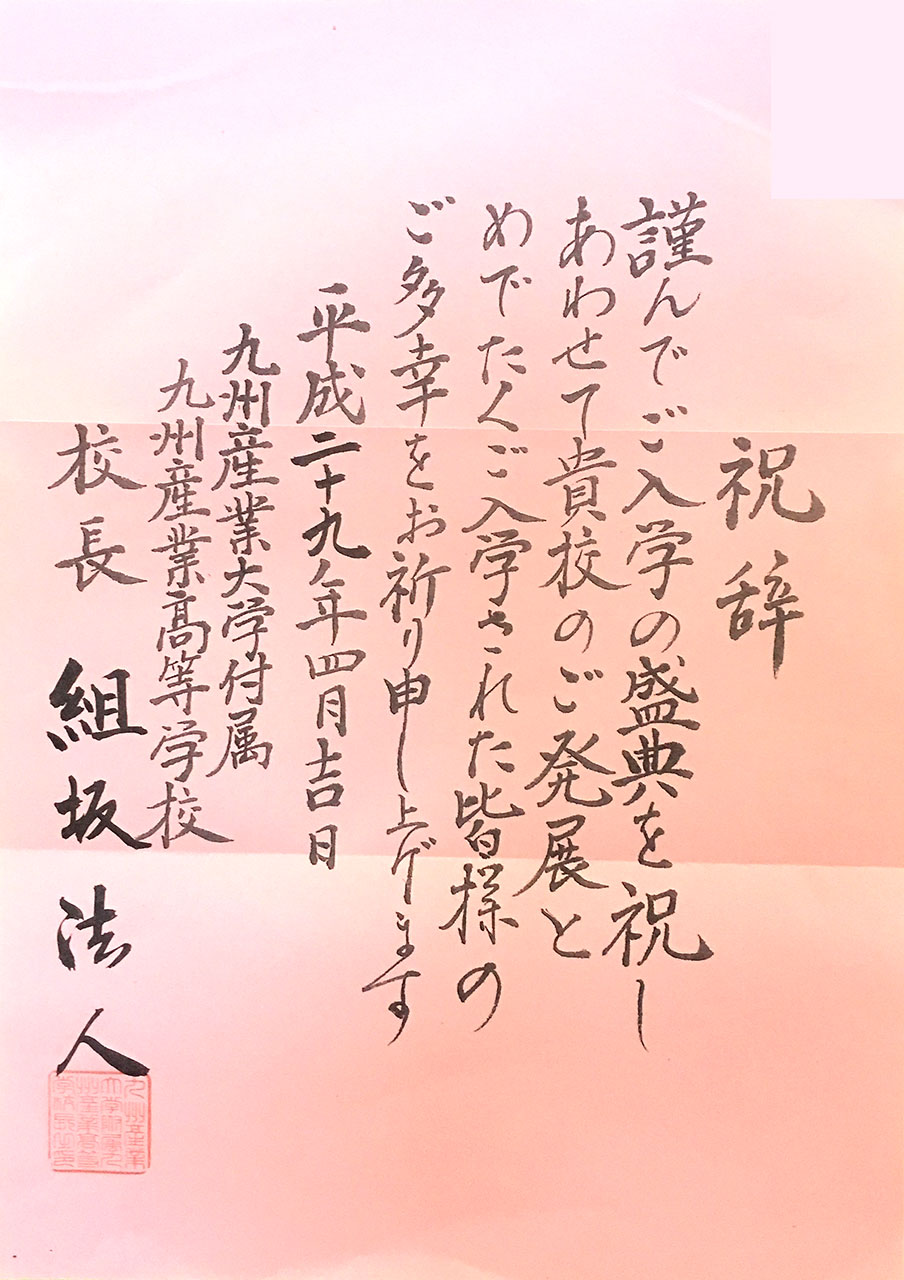 祝辞
謹んでご入学の盛典を祝し
あわせて貴校のご発展と
めでたくご入学された皆様の
ご多幸をお祈り申し上げます
平成二十九年四月吉日
九州産業大学付属
九州産業高等学校
校長 組坂法人